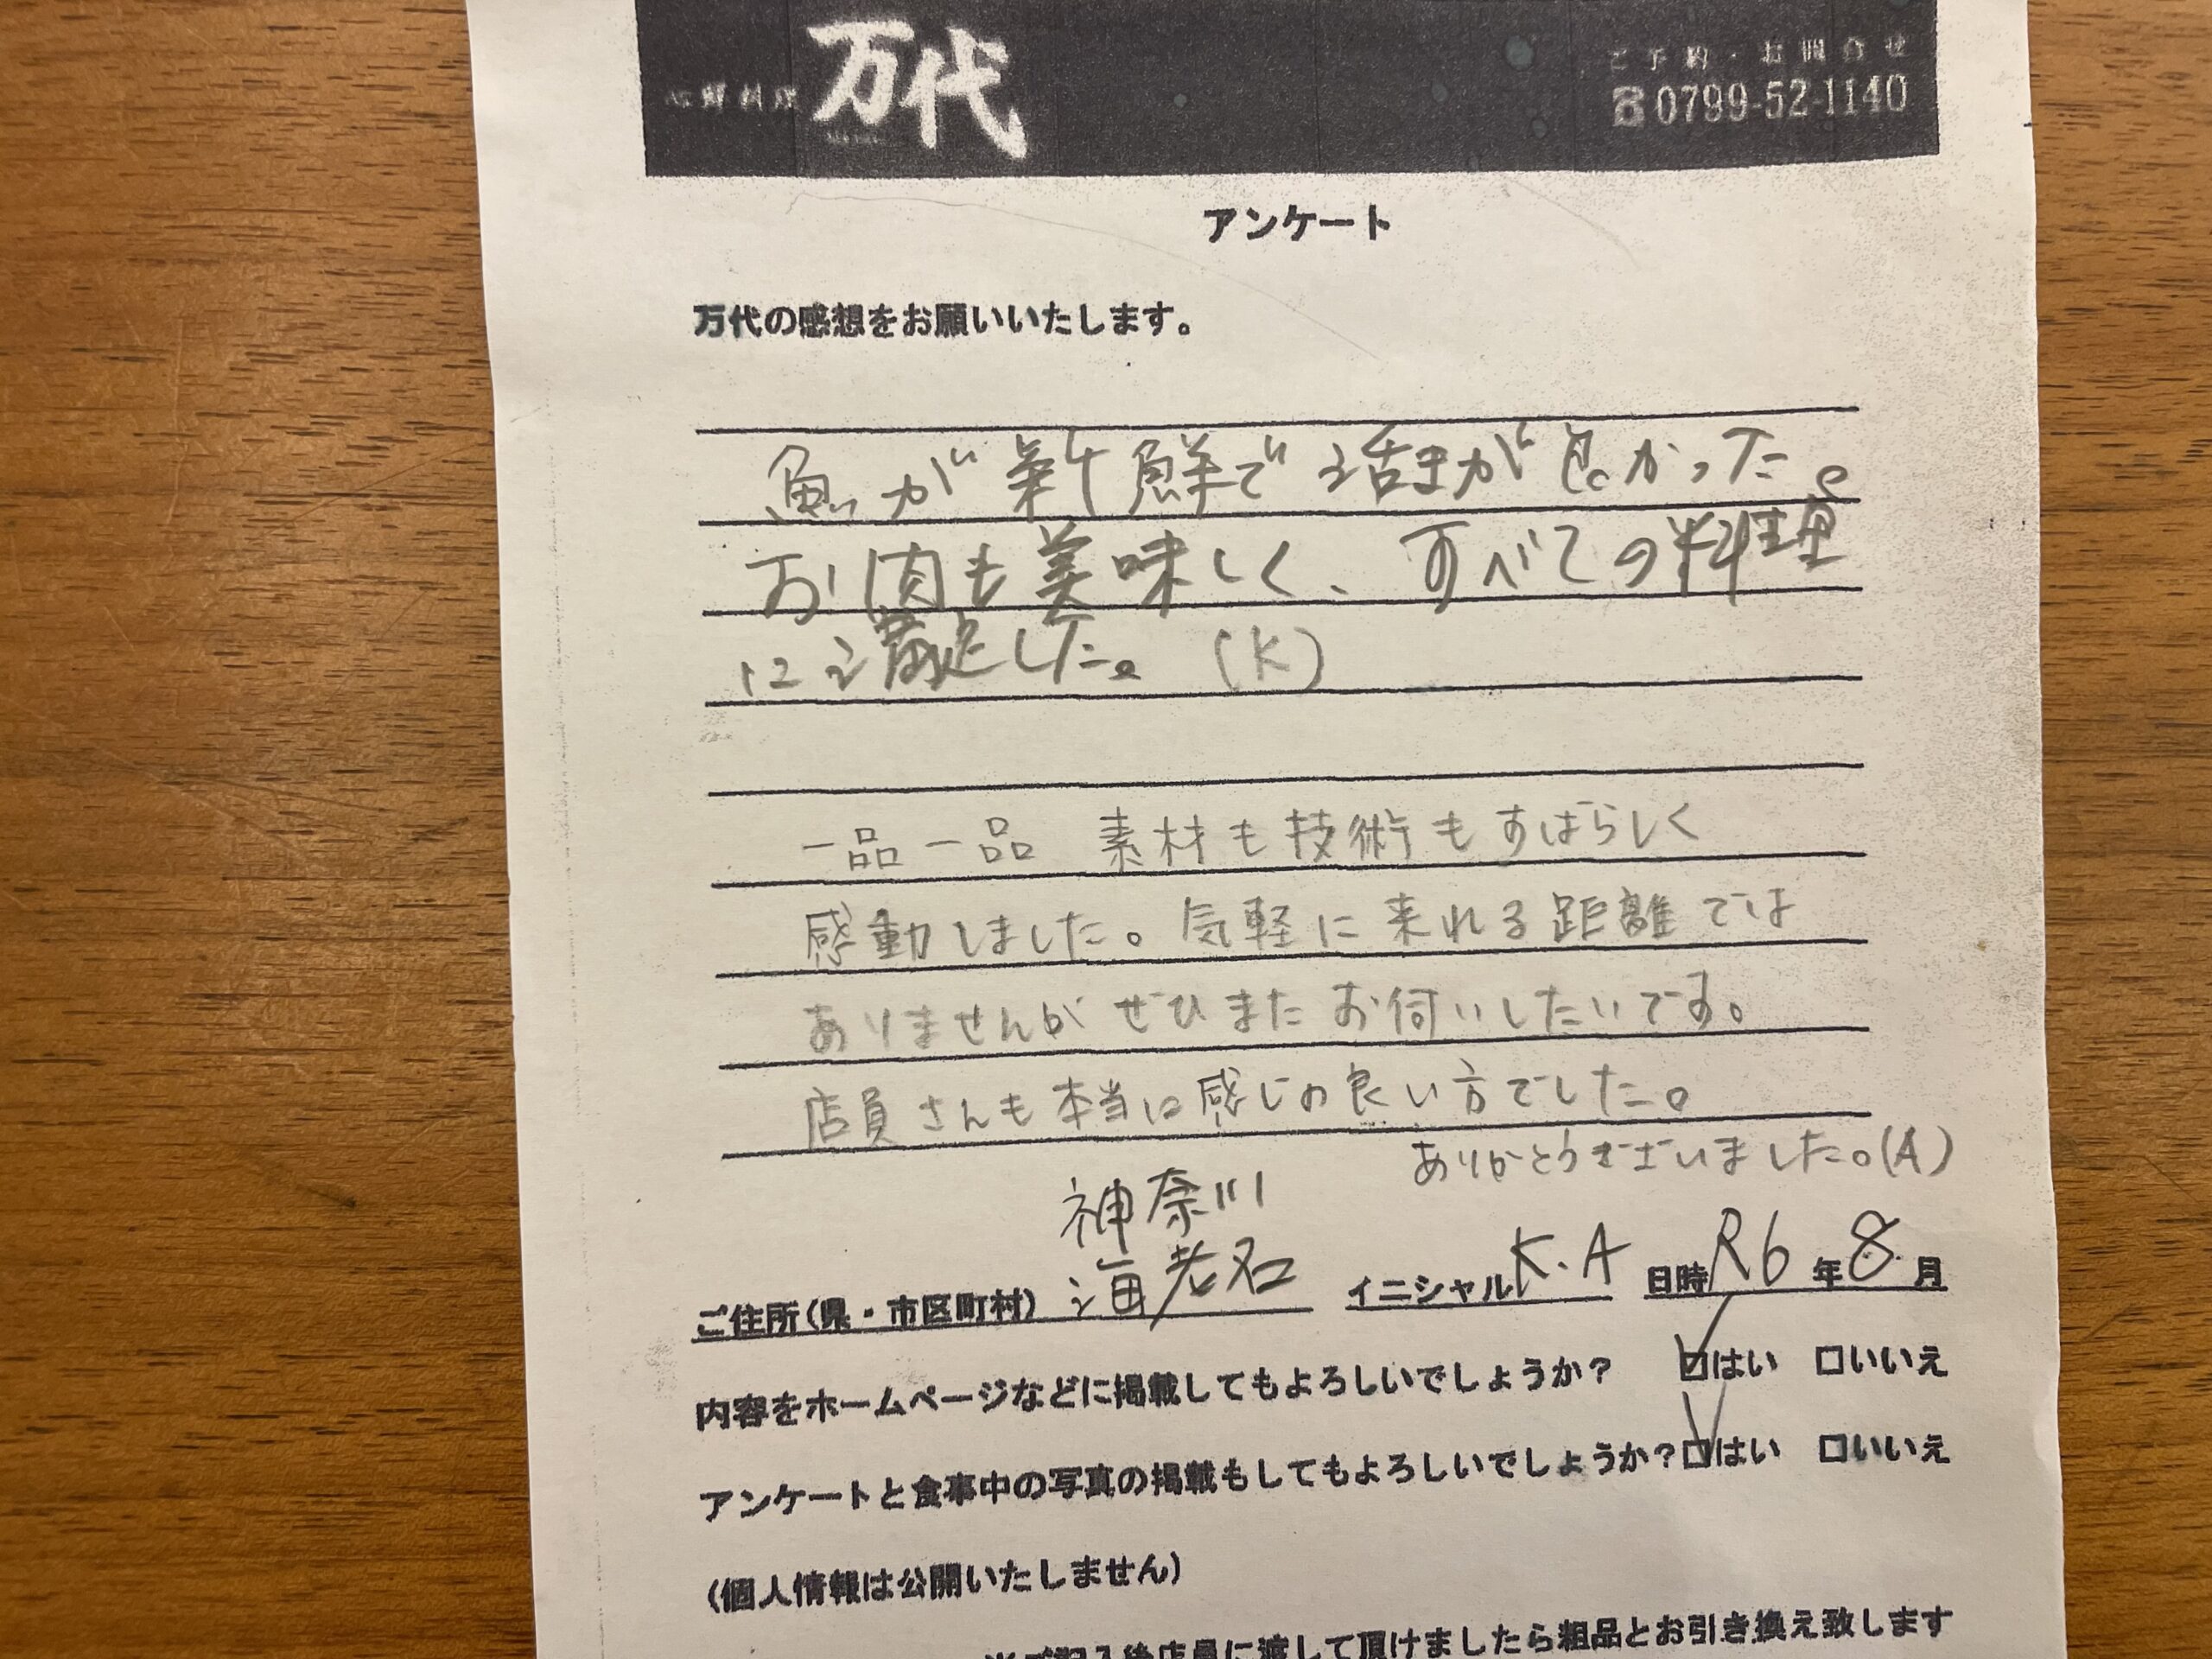 心鮮料理 万代
ご予約・お問合せ
☎0799-52-1140
アンケート
万代の感想をお願いいたします。
魚が新鮮で活きが良かった。
お肉も美味しく、すべての料理
に満足した。(K)
一品一品 素材も技術もすばらしく
感動しました。気軽に来れる距離では
ありませんが ぜひまた お伺いしたいです。
店員さんも本当に感じの良い方でした。
ありがとうございました。(A)
神奈川
ご住所(県・市区町村) 海老名 イニシャル K.A 日時 R6 年 8 月
内容をホームページなどに掲載してもよろしいでしょうか? ☑はい □いいえ
アンケートと食事中の写真の掲載もしてもよろしいでしょうか? ☑はい □いいえ
(個人情報は公開いたしません)
※ご記入後店員に渡して頂けましたら粗品とお引き換え致します